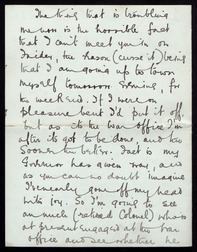 The thing that is troubling
me now is the horrible fact
that I can't meet you in on
Friday, the reason (curse it) being
that I am going up to town
myself tomorrow evening, for
the week end. If I were on
pleasure bent I'd put it off,
but as it's the War Office I'm
it's got to be done, and the
sooner the better. Fact is my
Governor has given way, and
as you can no doubt imagine
I've nearly gone off my head
with joy. So I'm going to see
an uncle (retired Colonel) who is
at present engaged at the War
Office and see whether he